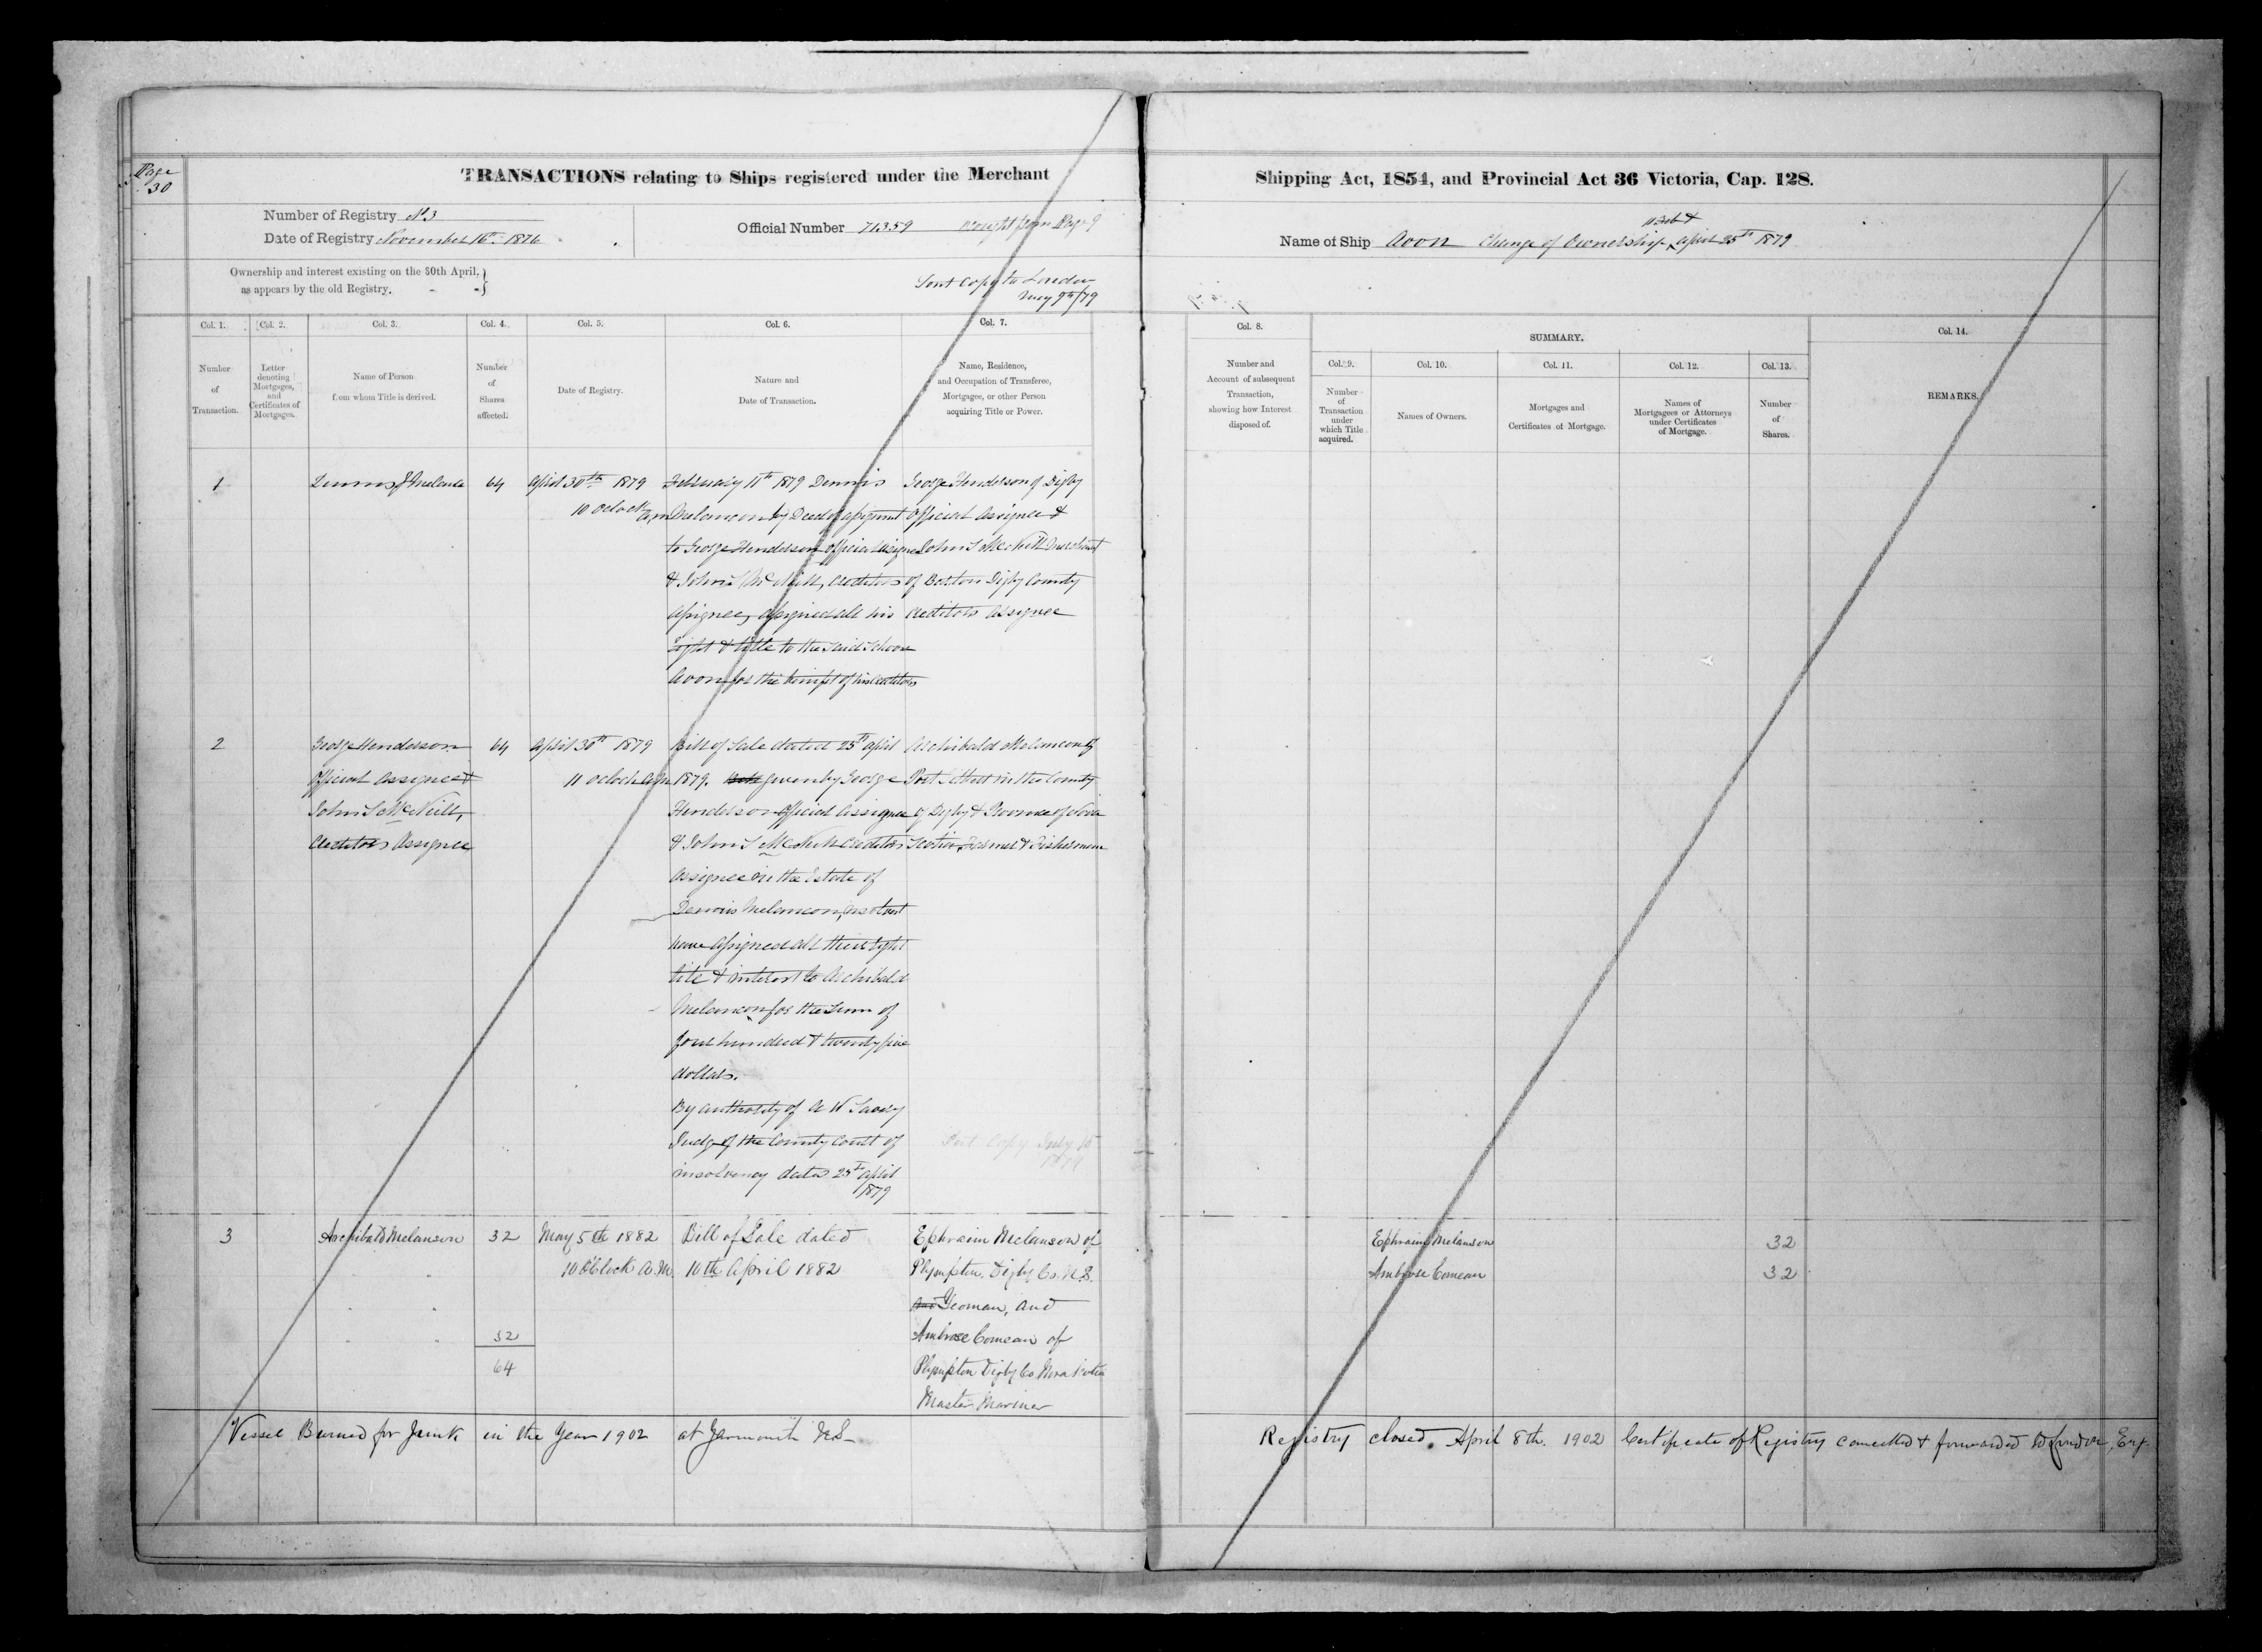 Page
30
TRANSACTIONS relating to Ships registered under the Merchant
Shipping Act, 1854, and Provincial Act 36 Victoria, Cap. 128.
Number of Registry No 3
Date of Registry November 16th 1876
Official Number 71359 Brought from Page 9
11 Feb &
Name of Ship Avon Change of Ownership April 25th 1879
Ownership and interest existing on the 30th April,
as appears by the old Registry.
Sent Copy to London
May 9th/79
Col. 1.
Number
of
Transaction.
Col. 2.
Letter
denoting
Mortgages,
and
Certificates of
Mortgages.
Col. 3.
Name of Person
from whom Title is derived.
Col. 4.
Number
of
Shares
affected.
Col. 5.
Date of Registry.
Col. 6.
Nature and
Date of Transaction.
Col. 7.
Name, Residence,
and Occupation of Transferee,
Mortgagee, or other Person
acquiring Title or Power.
Col. 8.
Number and
Account of subsequent
Transaction,
showing how Interest
disposed of.
SUMMARY.
Col. 9.
Number
of
Transaction
under
which Title
acquired.
Col. 10.
Names of Owners.
Col. 11.
Mortgages and
Certificates of Mortgage.
Col. 12.
Names of
Mortgagees or Attorneys
under Certificates
of Mortgage.
Col. 13.
Number
of
Shares.
Col. 14.
REMARKS.
1
Dennis
64
April 30th 1879
10 oclock a,m
February 11th 1879 Dennis
Melancon by Deed of assignment
to George Henderson Official Assignee
& John S McNeill, Creditors
Assignee, assigned all his
right & title to the said Schooner
Avon for the benefit of his creditors
George Henderson of Digby
Official Assignee &
John S McNeill Merchant
of Barton Digby County
Creditors Assignee
2
George Henderson
Official Assignee &
John S McNeill,
Creditors Assignee
64
April 30th 1879
11 oclock a,m
Bill of Sale dated 25th April
1879. given by George
Henderson Official Assignee
& John S McNeill Creditors
Assignee in the Estate of
Dennis Melancon, insolvent
have assigned all their right
title & interest to Archibald
Melancon for the sum of
four hundred & twenty five
dollars.
By authority of A W Savary
Judge of the County Court of
insolvency dated 25th April
1879
Archibald Melancon of
Port Gilbert in the County
of Digby & Province of Nova
Scotia, Farmer & Fisherman
Sent Copy July 15
3
Archibald Melanson
32
May 5th 1882
10 O'Clock A.M.
Bill of Sale dated
10th April 1882
Ephraim Melanson of
Plympton, Digby Co. N.S.
Yeoman, and
Ambrose Comeau of
Plympton Digby Co. Nova Scotia
Master Mariner
" "
" "
" "
32
64
Ephraim Melanson 32
Ambrose Comeau 32
Vessel Burned for Junk in the Year 1902 at Yarmouth N.S.
Registry closed. April 8th. 1902 Certificate of Registry cancelled & forwarded to London, Eng.